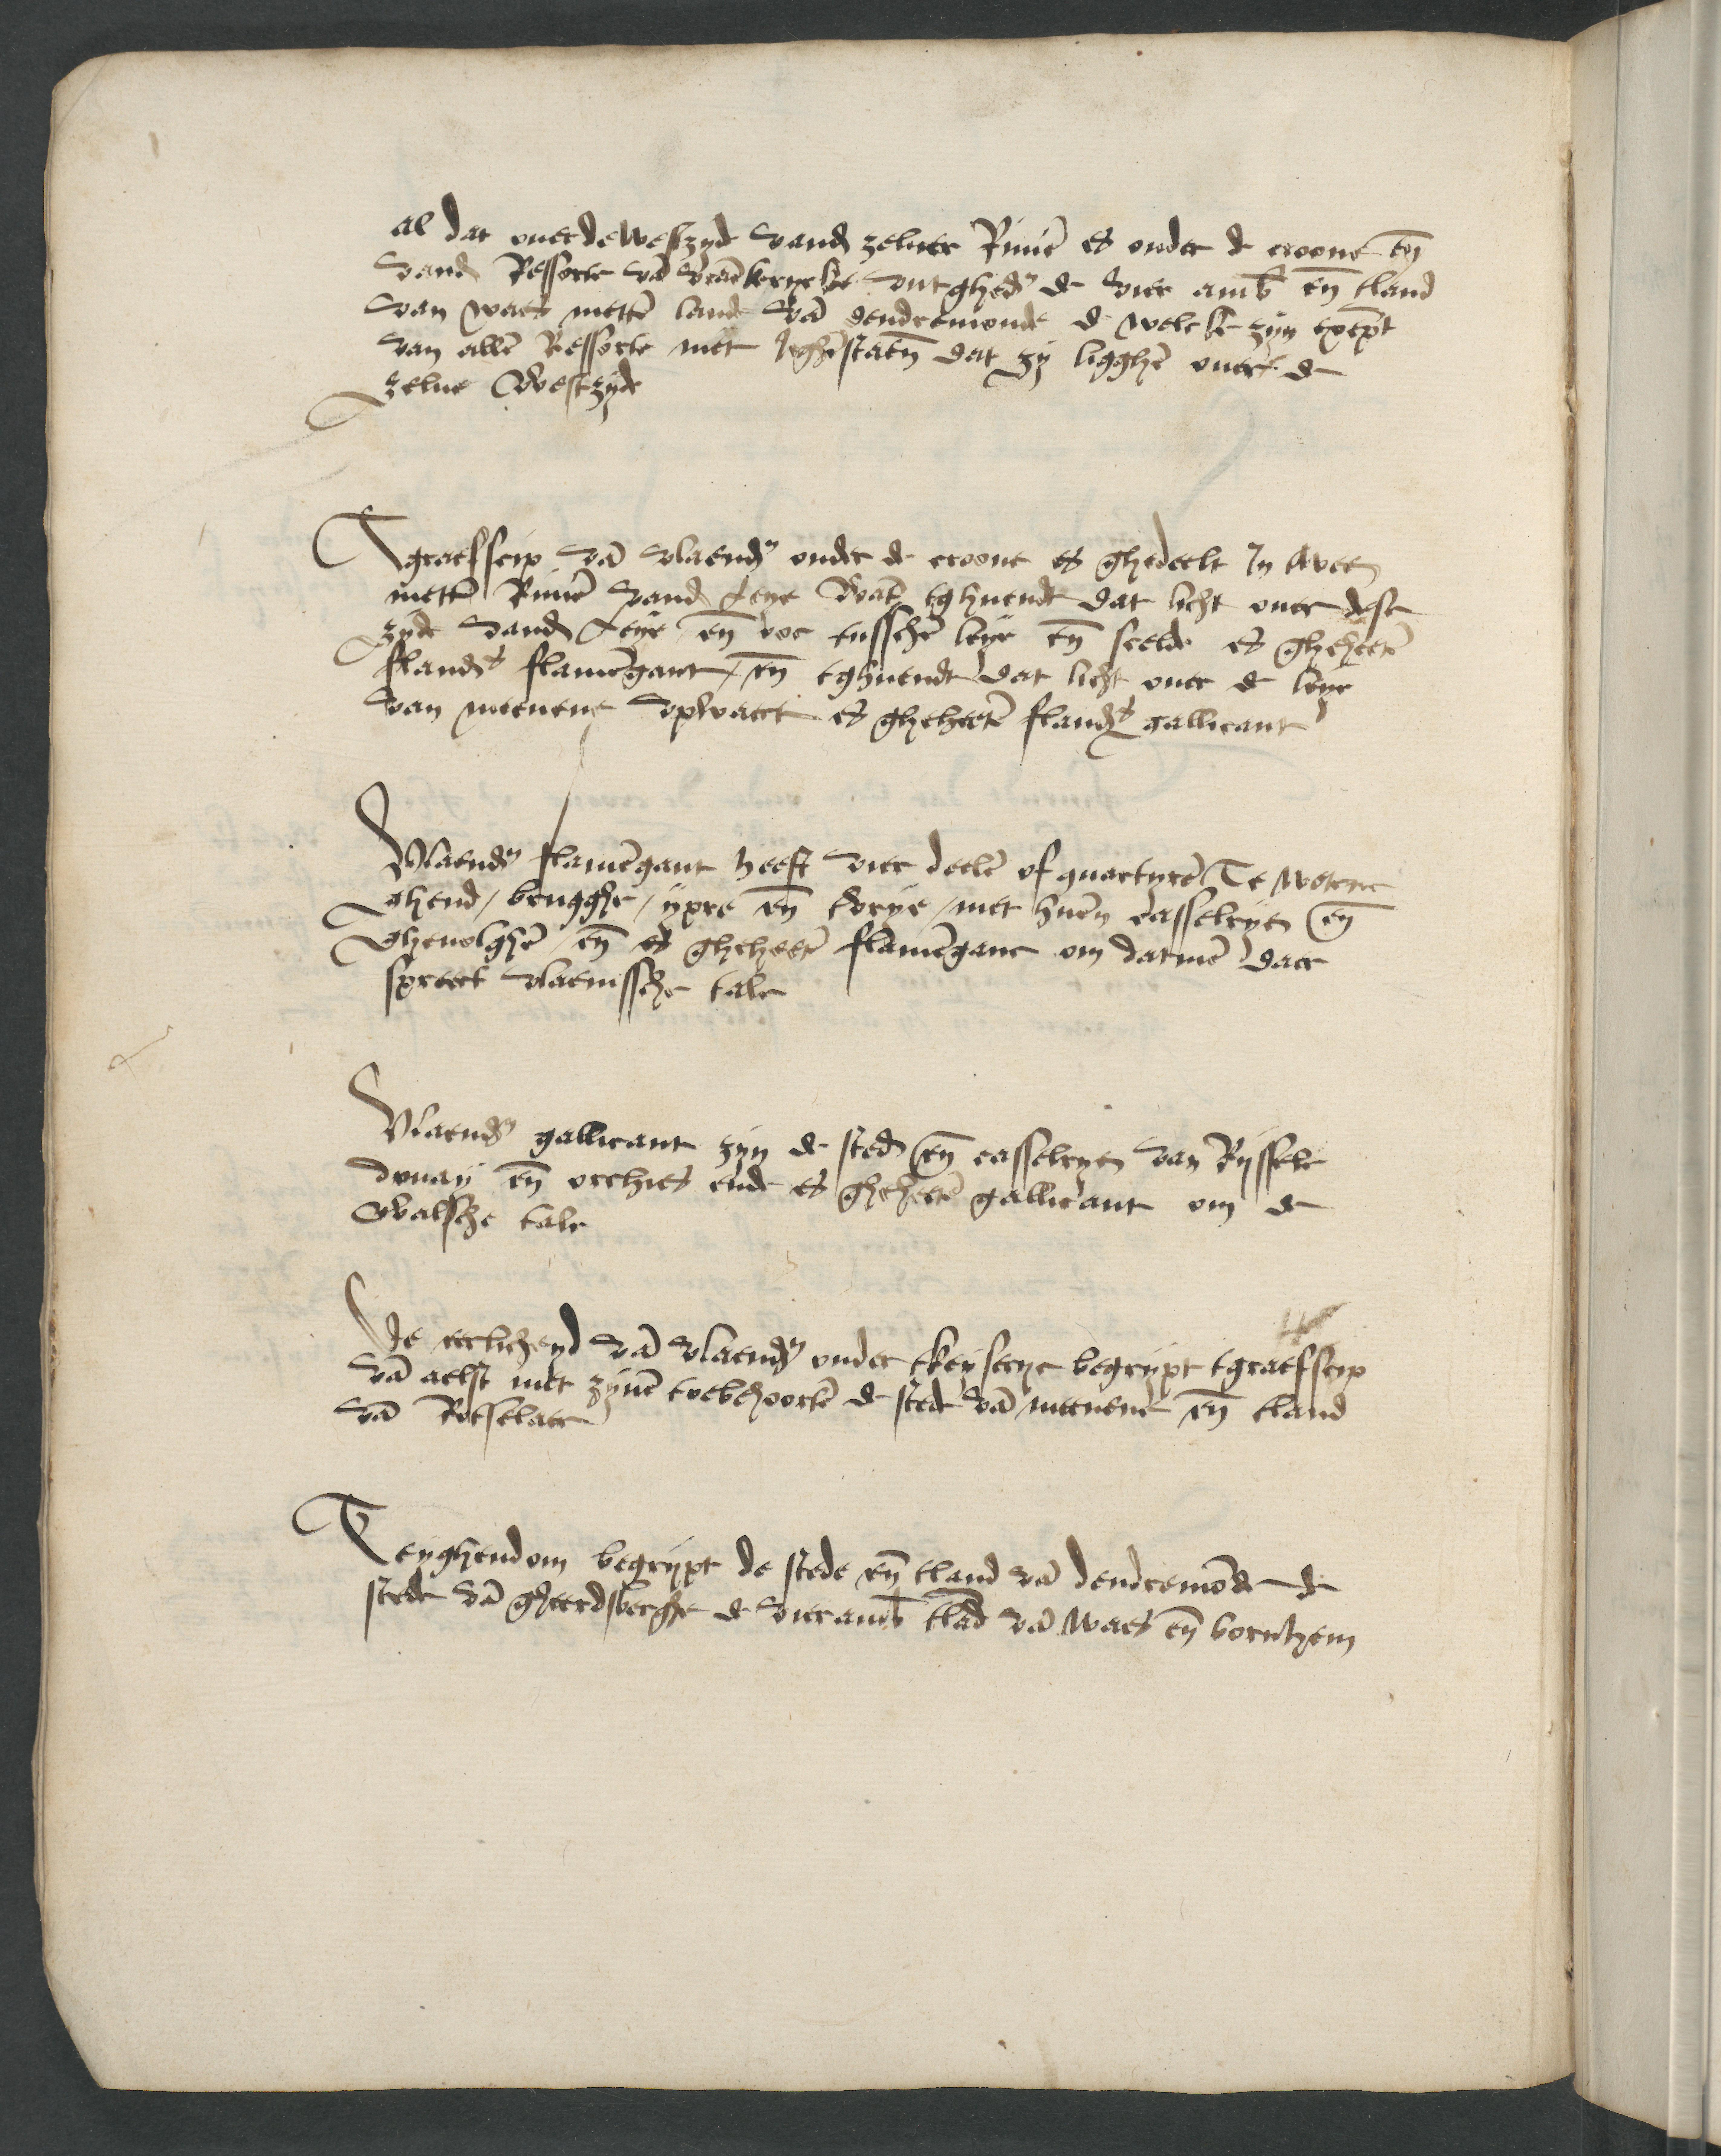 al dat ouer de westzyde vand zeluer Riuiē es onder de croone eñ
vand Ressorte vā vrāckerycke vutghedᵗ de vier amb̄ eñ tland
van waes mettē lande vā dendremonde de welcke zyn exēpt
van allē Ressorte niet jeghēstaēn dat zy ligghē ouer de
zelue westzyde
Tgraefscip vā vlaendᵉ onder de croone es ghedeelt Jn twee
mettē Riuiē vand Leye Want tghuendt dat licht ouer dese
zyde vand Leye eñ ooc tusschē leye eñ scelde es gheheetē
flandˢ flamēgant / eñ tghuendt dat licht ouer de leye
van meenene vpwaert es gheheetē flandˢ gallicant
Vlaendᵉ flamēgant heeft vier deelē of quartyrē Te wetene
ghend / brugghe / ypre eñ tvrye / met huēn casselryen eñ
Gheuolghē / eñ es gheheetē flamēganc om datmē daer
spreect vlaemssche tale
Vlaendᵉ gallicant zyn de sted eñ casselryen van Ryssele
douay eñ orchies ende es gheheetē gallicant om de
walsche tale
De eerlicheyd vā vlaendᵉ onder tkeyserye begrypt tgraefscip
vā aelst met zynē toebehoortē de stede vā meenene eñ tland
vā Rotselaer
Teyghendom begrypt de stede eñ tland vā dendremōde de
stede vā gheerdsberghe de vier amb̄ tlād vā waes eñ bornhem